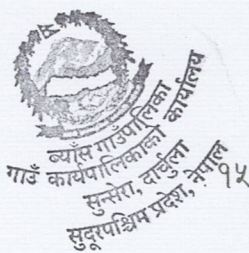 ब्याँस गाउँपालिका
गाउँ कार्यपालिकाको कार्यालय
सुन्सेरा, दार्चुला
सुदूरपश्चिम प्रदेश, नेपाल
१५